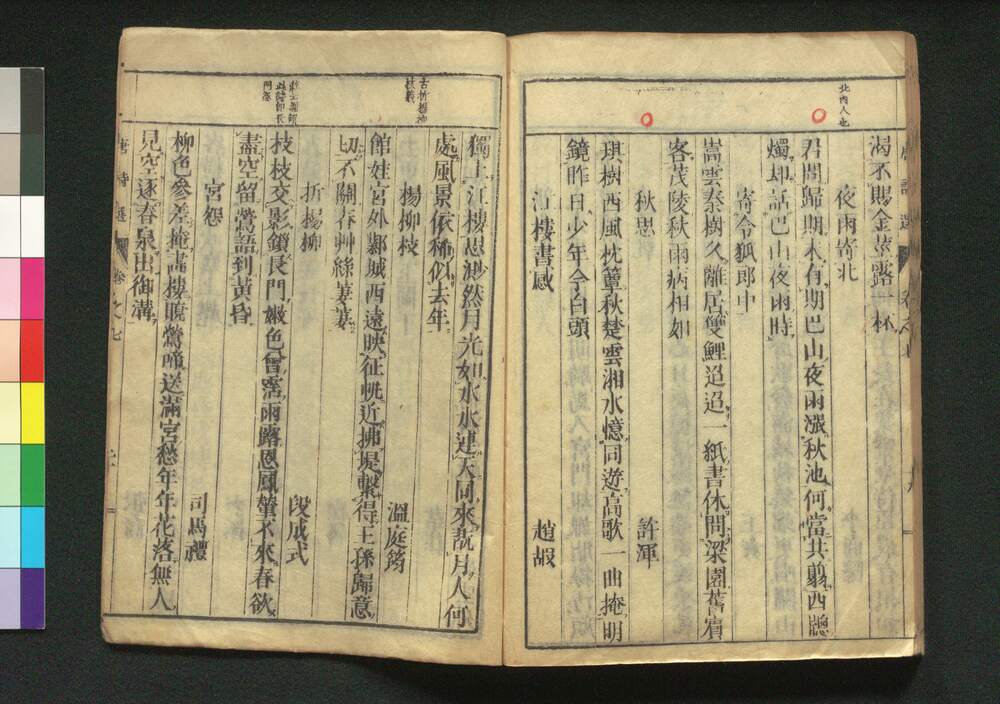 北内人也
渴不賜金莖露一杯
夜雨寄北
君問歸期未有期巴山夜雨漲秋池何當共剪西牕
燭却話巴山夜雨時
寄令狐郎中
嵩雲秦樹久離居雙鯉迢迢一紙書休問梁園舊賓
客茂陵秋雨病相如
秋思
許渾
琪樹西風枕簟秋楚雲湘水憶同遊高歌一曲掩明
鏡昨日少年今白頭
江樓書感
趙嘏
獨上江樓思渺然月光如水水連天同來翫月人何
處風景依稀似去年
楊柳枝
溫庭筠
館娃宮外鄴城西遠映征帆近拂堤繫得王孫歸意
切不關春艸綠萋萋
折楊柳
段成式
枝枝交影鎖長門嫩色曾霑雨露恩鳳輦不來春欲
盡空留鶯語到黃昏
宮怨
司馬禮
柳色參差掩畵樓曉鶯啼送滿宮愁年年花落無人
見空逐春泉出御溝
唐詩選
卷之七